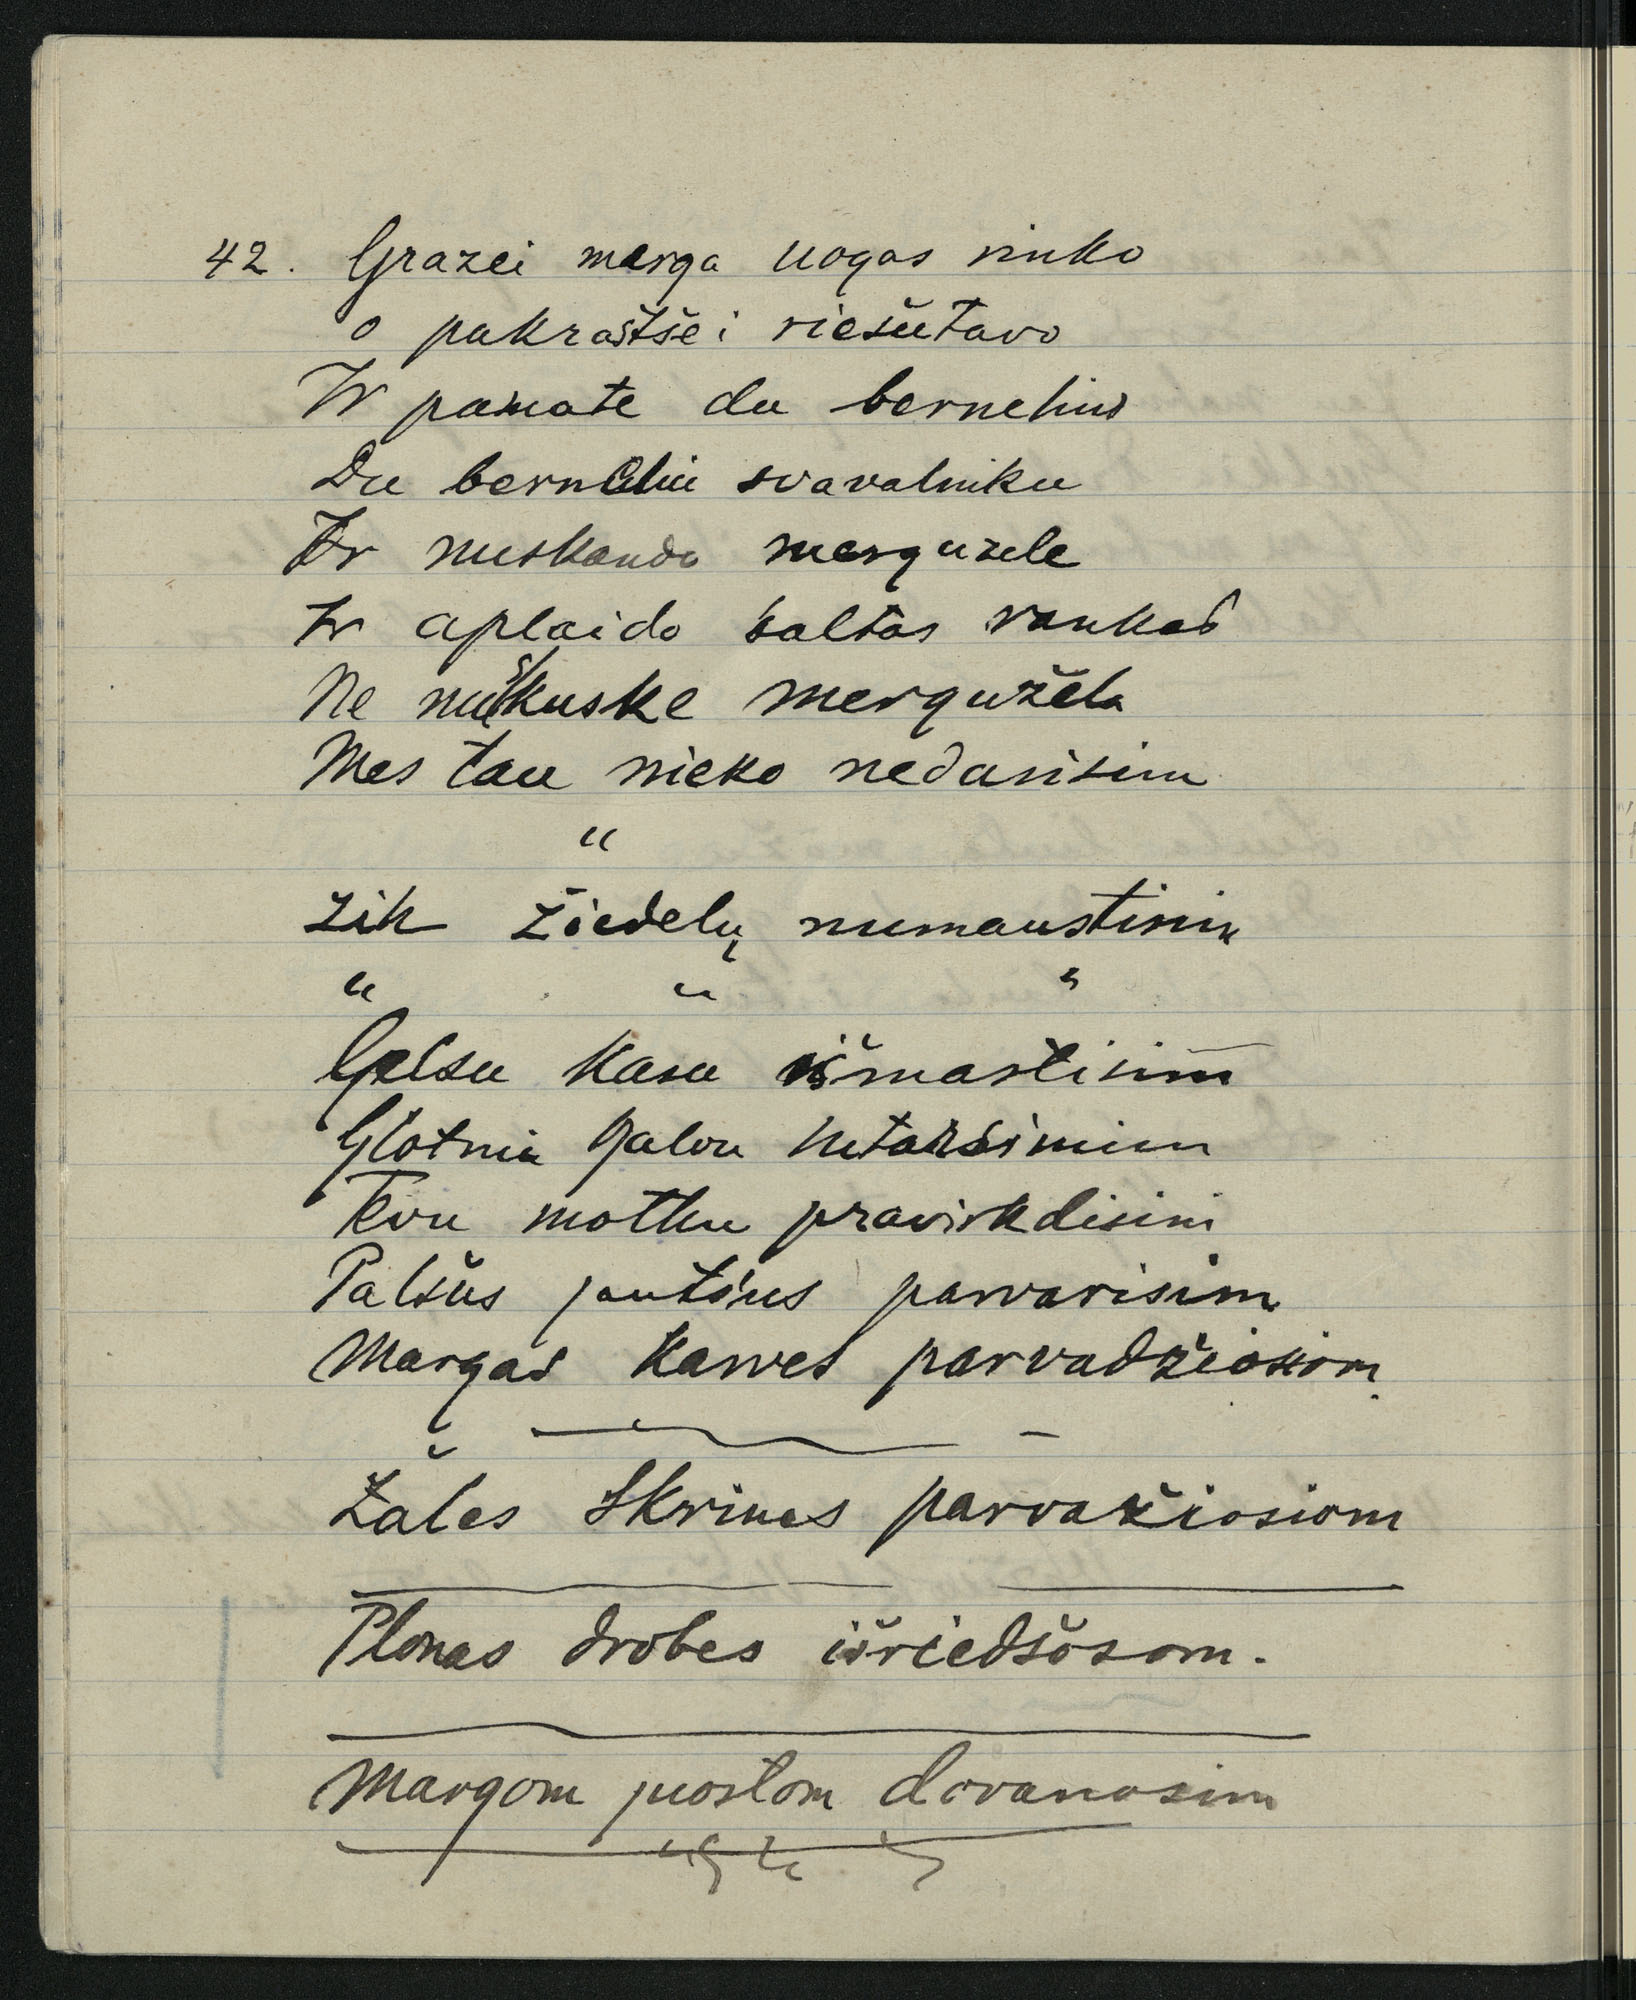 42. Grazei merga uogas rinko
o pakraštšei riešutavo
Ir pamate du berneliu
Du berneliu svavalniku
Ir nuskando merguzele
Ir aplaido baltas rankas
Ne nuškuske mergužela
Mes tau nieko nedarisim
"
Zik žiedelų numaustisim
" " "
Gelsu kasu išmastisim
Glotnia galvu
Tevu motku pravirkdisim
Palšus jautšus parvarisim
Margas karves parvadžiosiom
Žales Skrines parvažiosiom
Plonas drobes išriedšosom.
Margom juostom dovanosim